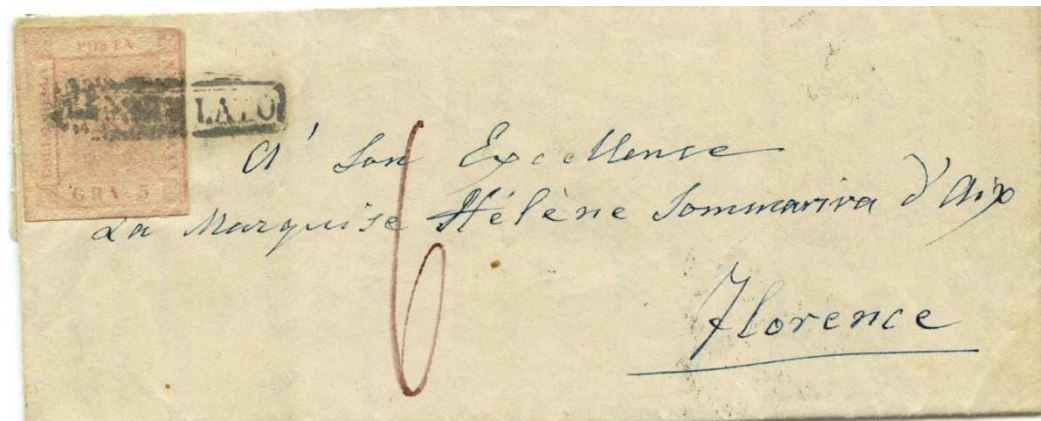 POSTA
LATO
GRA. 5
A' Son Excellence
La Marquise Hélène Sommariva d'Aix
Florence
6